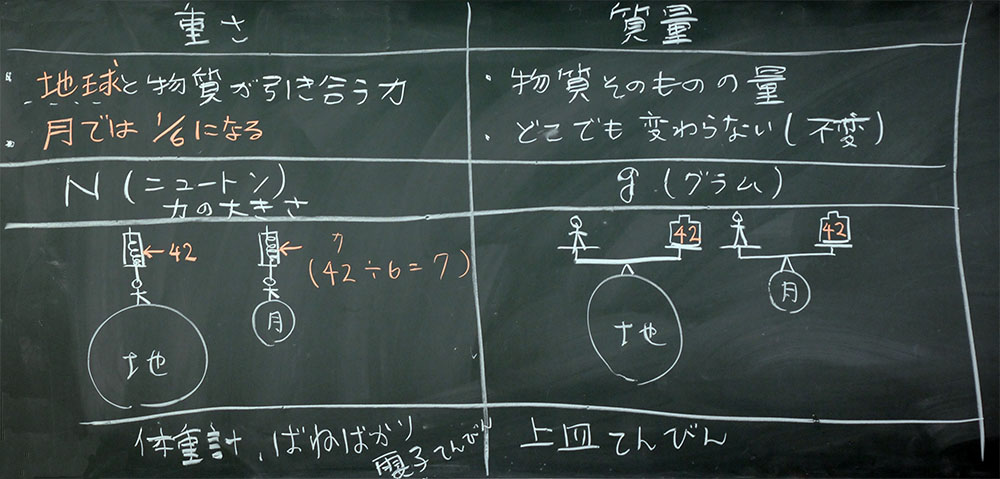 重さ
質量
・地球と物質が引き合う力
・月では1/6になる
・物質そのものの量
・どこでも変わらない(不変)
N(ニュートン)
力の大きさ
g(グラム)
42
(42÷6=7)
地
月
42
42
地
月
体重計、ばねばかり
電子てんびん
上皿てんびん